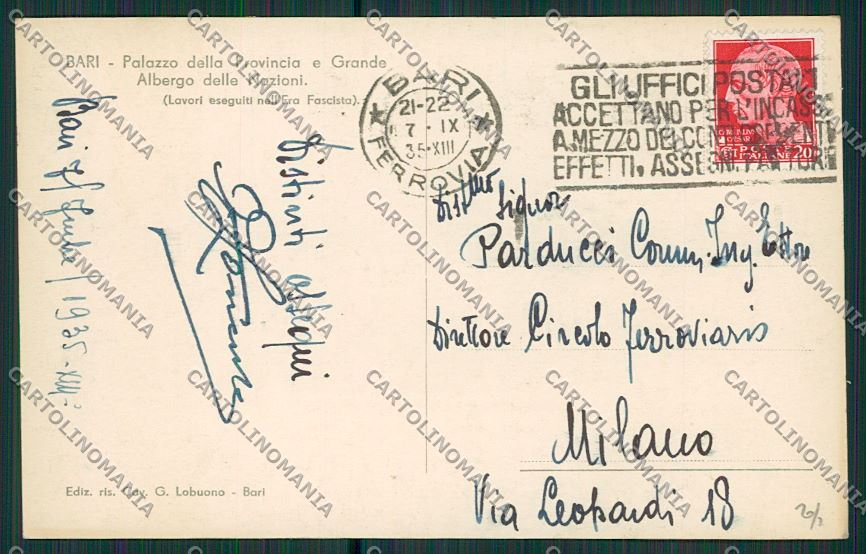 BARI - Palazzo della Provincia e Grande
Albergo delle Nazioni.
(Lavori eseguiti nell'Era Fascista).
BARI
21-22
7 - IX
35-XIII
FERROVIA
GLI UFFICI POSTALI
ACCETTANO PER L'INCASSO
A MEZZO DEI CONTI CORRENTI
EFFETTI, ASSEGNI, FATTURE
POSTE
ITALIANE 20
Bari 1935-XIII
Distinti ossequi
Dist.mo Signor
Parducci Comm. Ing. Ettore
Direttore Circolo Ferroviario
Milano
Via Leopardi 18
Ediz. ris. Cav. G. Lobuono - Bari
CARTOLINOMANIA